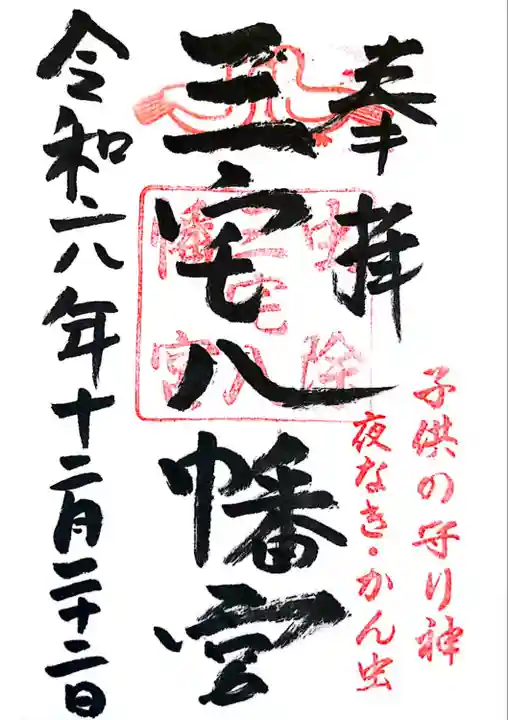 奉拝
子供の守り神
夜なき・かん虫
三宅八幡宮
虫除
三宅八
幡宮
令和六年十二月二十二日